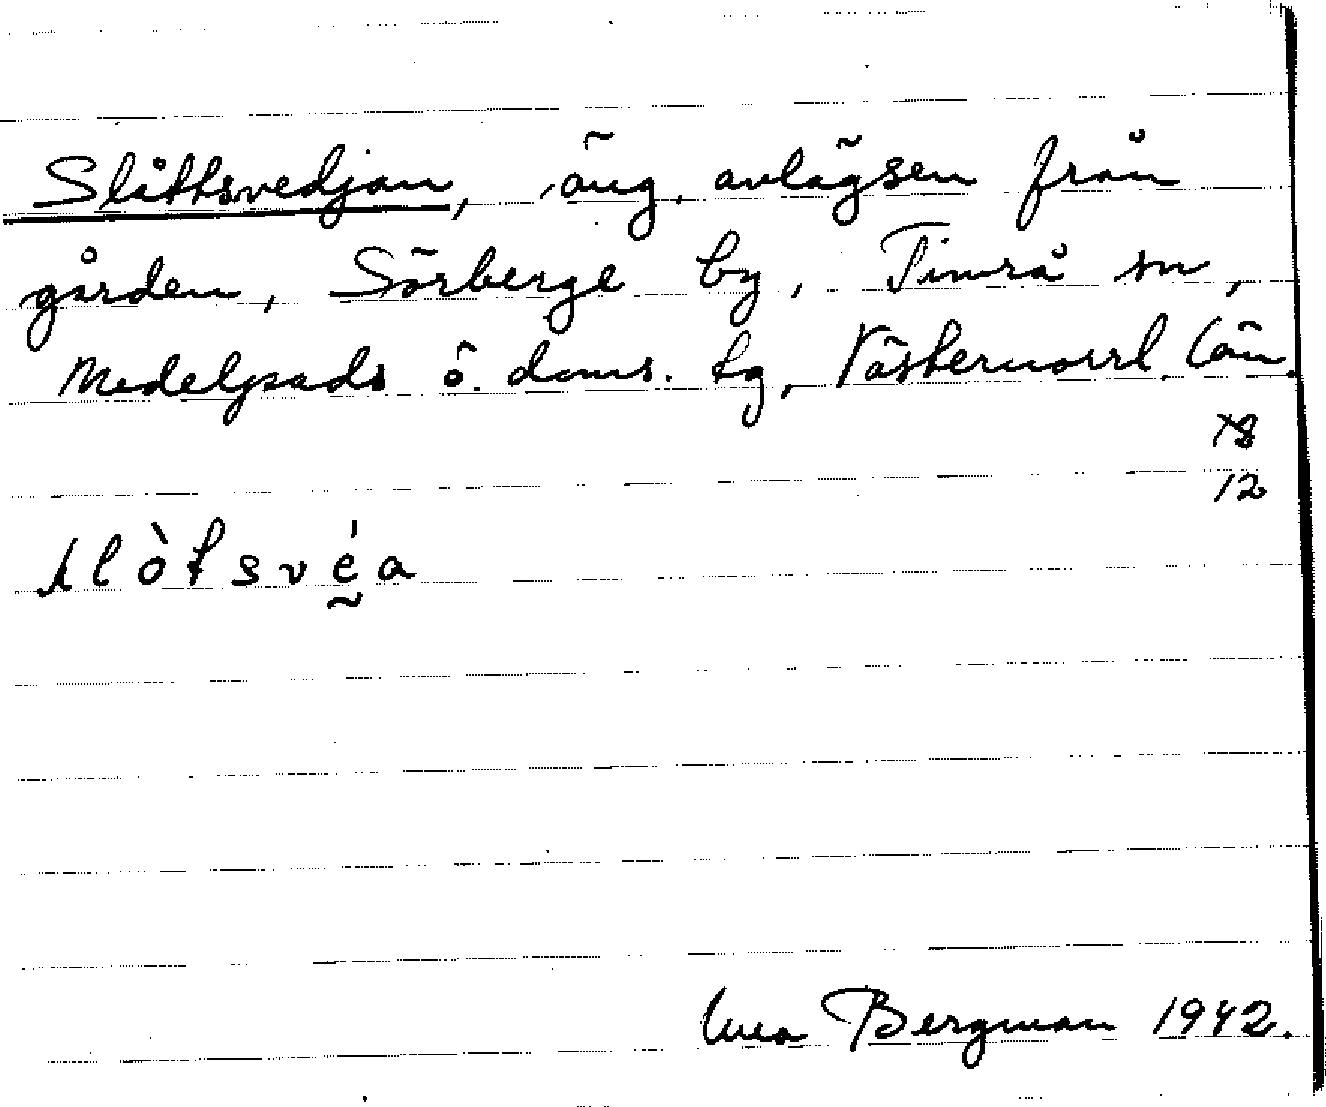 Slåttsvedjan, äng, avlägsen från
gården, Sörberge by, Timrå sn,
Medelpads ö. doms. tg, Västernorrl. län.
12
slòtsvéa
Bergman 1942.